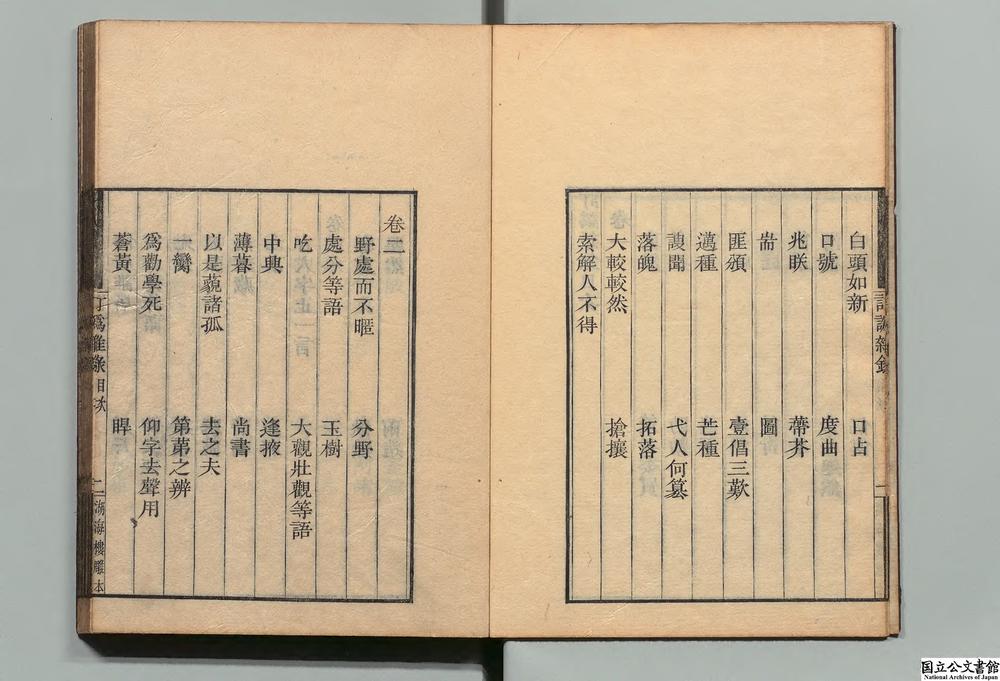 白頭如新　口占
口號　度曲
兆眹　蔕芥
耑　圖
匪頒　壹倡三歎
邁種　芒種
謏聞　弋人何篡
落魄　拓落
大較較然　搶攘
索解人不得
卷二
野處而不暱　分野
處分等語　玉樹
吃　大觀壯觀等語
中興　逢掖
薄暮　尚書
以是藐諸孤　去之夫
臠　第苐之辨
爲勸學死　仰字去聲用
蒼黃　睅
訂譌雜錄　目次　二　湖海樓雕本
国立公文書館
National Archives of Japan